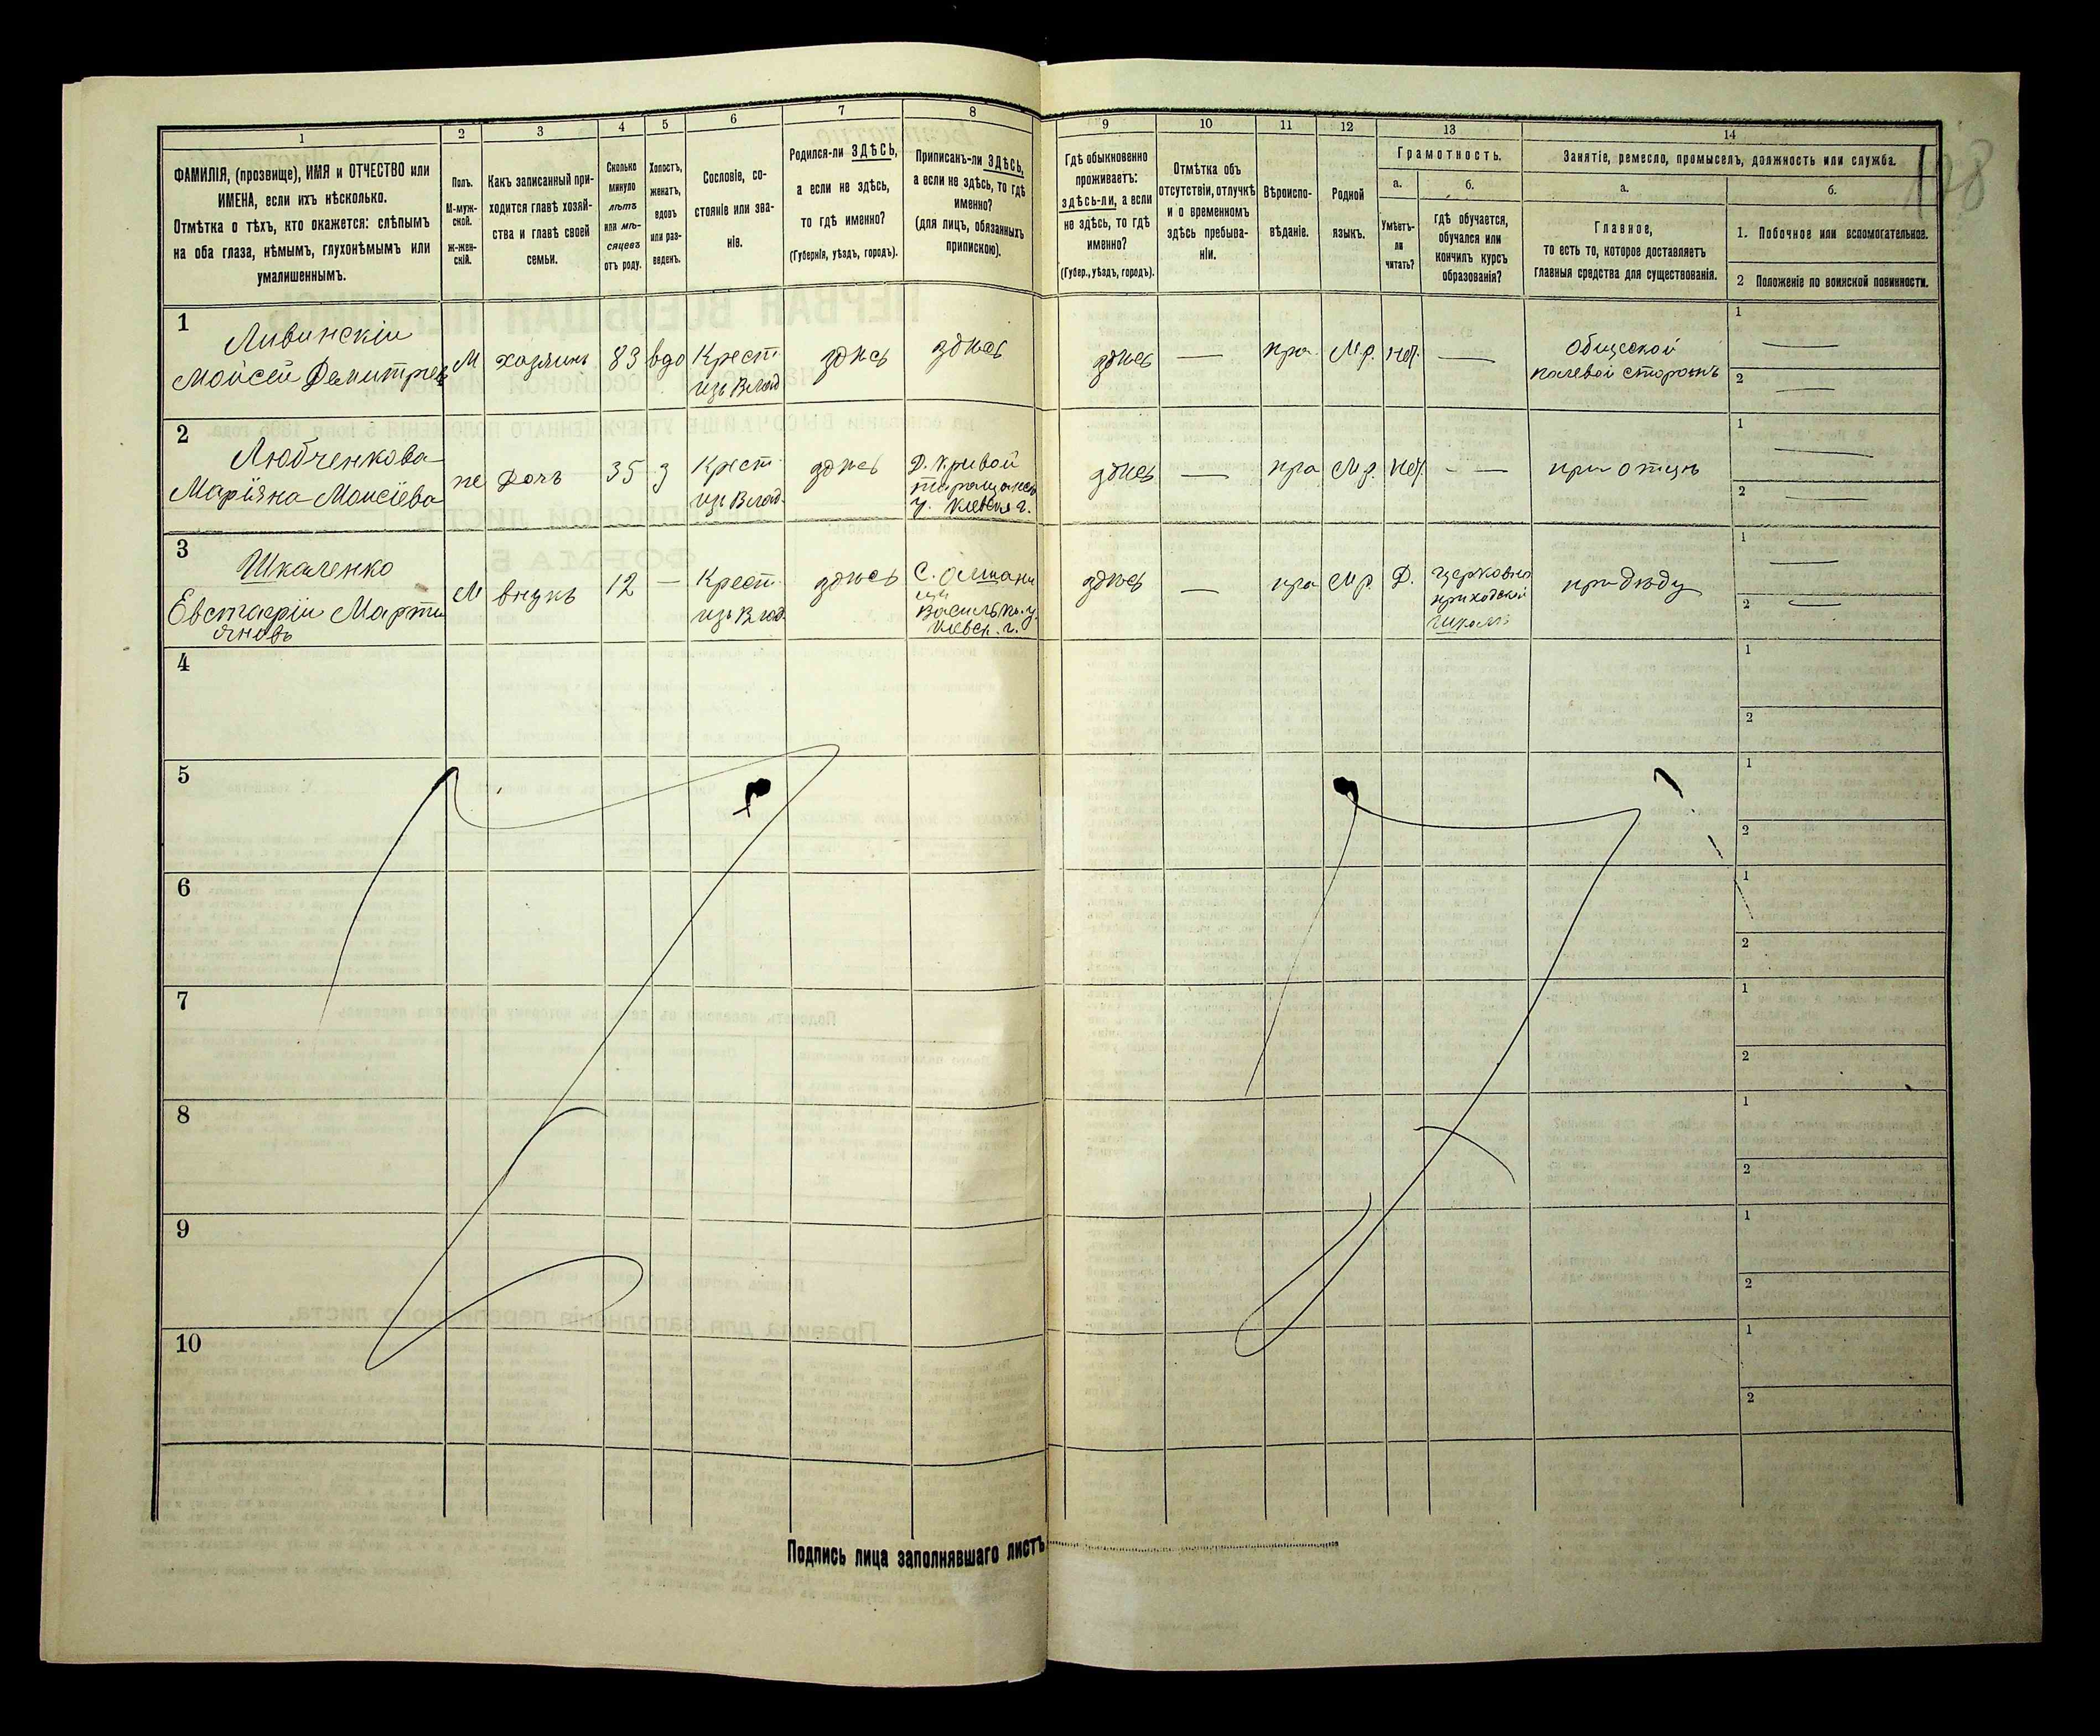 1
2
3
4
5
6
7
8
9
10
11
12
13
14
ФАМИЛІЯ, (прозвище), ИМЯ и ОТЧЕСТВО или
ИМЕНА, если ихъ нѣсколько.
Отмѣтка о тѣхъ, кто окажется: слѣпымъ
на оба глаза, нѣмымъ, глухонѣмымъ или
умалишеннымъ.
Полъ.
М-муж-
ской.
Ж-жен-
скій.
Какъ записанный при-
ходится главѣ хозяй-
ства и главѣ своей
семьи.
Сколько
минуло
лѣтъ
или мѣ-
сяцевъ
отъ роду.
Холостъ,
женатъ,
вдовъ
или раз-
веденъ.
Сословіе, со-
стояніе или зва-
ніе.
Родился-ли ЗДѢСЬ,
а если не здѣсь,
то гдѣ именно?
(Губернія, уѣздъ, городъ).
Приписанъ-ли ЗДѢСЬ,
а если не здѣсь, то гдѣ
именно?
(для лицъ, обязанныхъ
припискою).
Гдѣ обыкновенно
проживаетъ:
здѣсь-ли, а если
не здѣсь, то гдѣ
именно?
(Губер., уѣздъ, городъ).
Отмѣтка объ
отсутствіи, отлучкѣ
и о временномъ
здѣсь пребыва-
ніи.
Вѣроиспо-
вѣданіе.
Родной
языкъ.
Грамотность.
а.
Умѣетъ-
ли
читать?
б.
гдѣ обучается,
обучался или
кончилъ курсъ
образованія?
Занятіе, ремесло, промыселъ, должность или служба.
а.
Главное,
то есть то, которое доставляетъ
главныя средства для существованія.
б.
1. Побочное или вспомогательное.
2 Положеніе по воинской повинности.
1
Ливинскій
Мойсей Демитріев
М
хозяинъ
83
вдо
Крест.
изъ Влад
здѣсь
здѣсь
здѣсь
—
пра.
М.р.
нет.
—
Общеской
полевой сторожъ
1
—
2
—
2
Любченкова
Маріяна Моисіева
же
Дочь
35
з
Крест.
изъ Влад.
здѣсь
Д. Кривой
таращанск
у. Кіевск г.
здѣсь
—
пра
М.р.
нет.
—
при отцѣ
1
—
2
—
3
Шкаленко
Евстафій Марти
яновъ
М
внукъ
12
—
Крест.
изъ Влад.
здѣсь
Васильк. у.
Кіевск. г.
здѣсь
—
пра
М.р.
Д.
Церковно
приходской
школѣ
при дѣду
1
—
2
—
4
1
2
5
1
2
6
1
2
7
1
2
8
1
2
9
1
2
10
1
2
Подпись лица заполнявшаго листъ